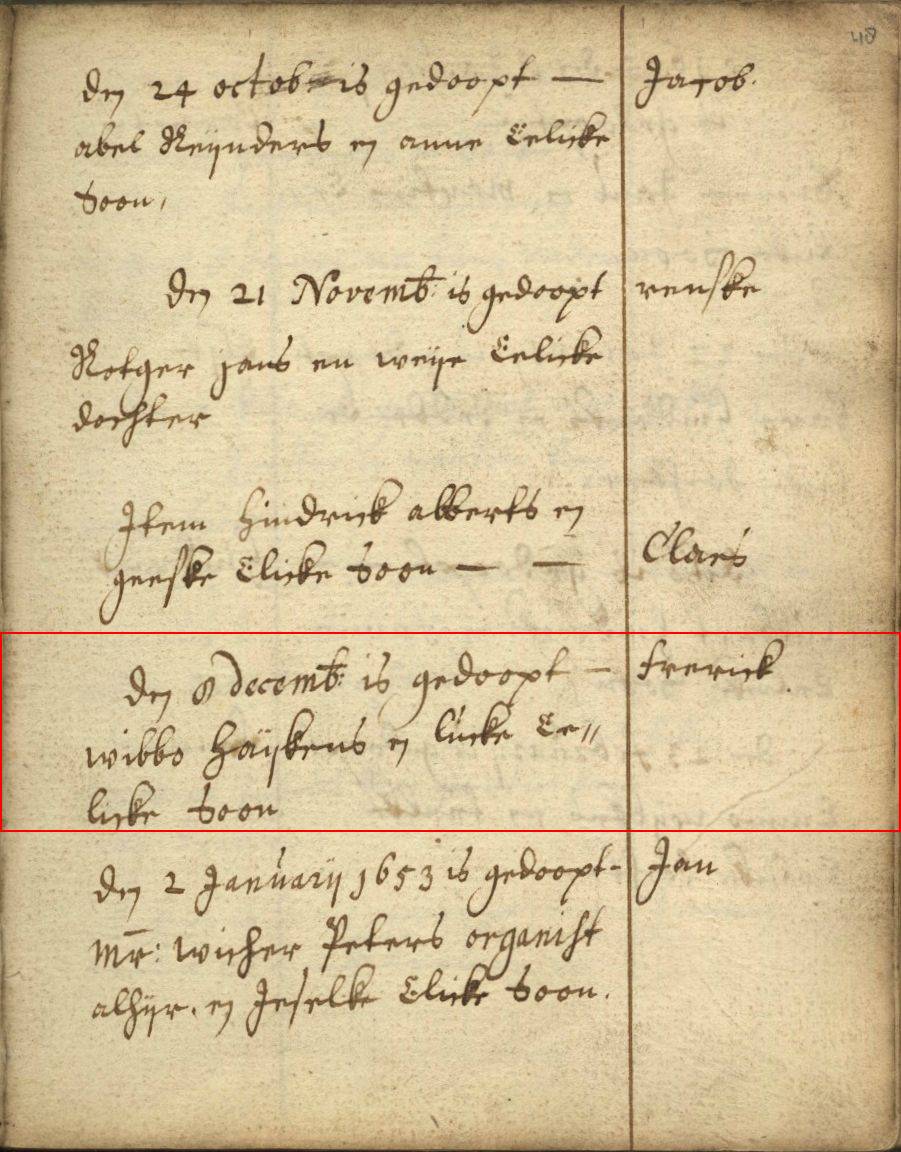 48
den 24 octob is gedoopt — Jacob.
abel Reijnders en anne Eelicke
Soon,
den 21 Novemb: is gedoopt renske
Rotger jans en weije Eelicke
dochter
Item hindrick alberts en
geeske Elicke Soon — — Claes
den 8 decemb: is gedoopt — frerick
wibbo haijkens en lücke Ee〃
licke Soon
den 2 Januarij 1653 is gedoopt - Jan
Mr: wicher Peters organist
alhijr. en Jeselke Elicke Soon.